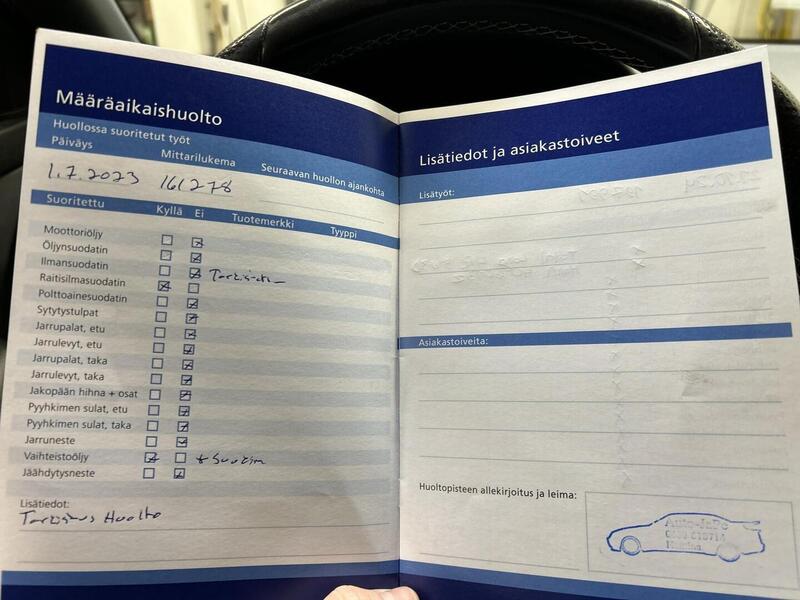 Määräaikaishuolto
Huollossa suoritetut työt
Päiväys Mittarilukema Seuraavan huollon ajankohta
1.7.2023 161278
Suoritettu Kyllä Ei Tuotemerkki Tyyppi
Moottoriöljy
Öljynsuodatin
Ilmansuodatin
Raitisilmasuodatin
Polttoainesuodatin
Sytytystulpat
Jarrupalat, etu
Jarrulevyt, etu
Jarrupalat, taka
Jarrulevyt, taka
Jakopään hihna + osat
Pyyhkimen sulat, etu
Pyyhkimen sulat, taka
Jarruneste
Vaihteistoöljy
Jäähdytysneste
Lisätiedot:
Tarkistus Huolto
Lisätiedot ja asiakastoiveet
Lisätyöt:
Asiakastoiveita:
Huoltopisteen allekirjoitus ja leima: